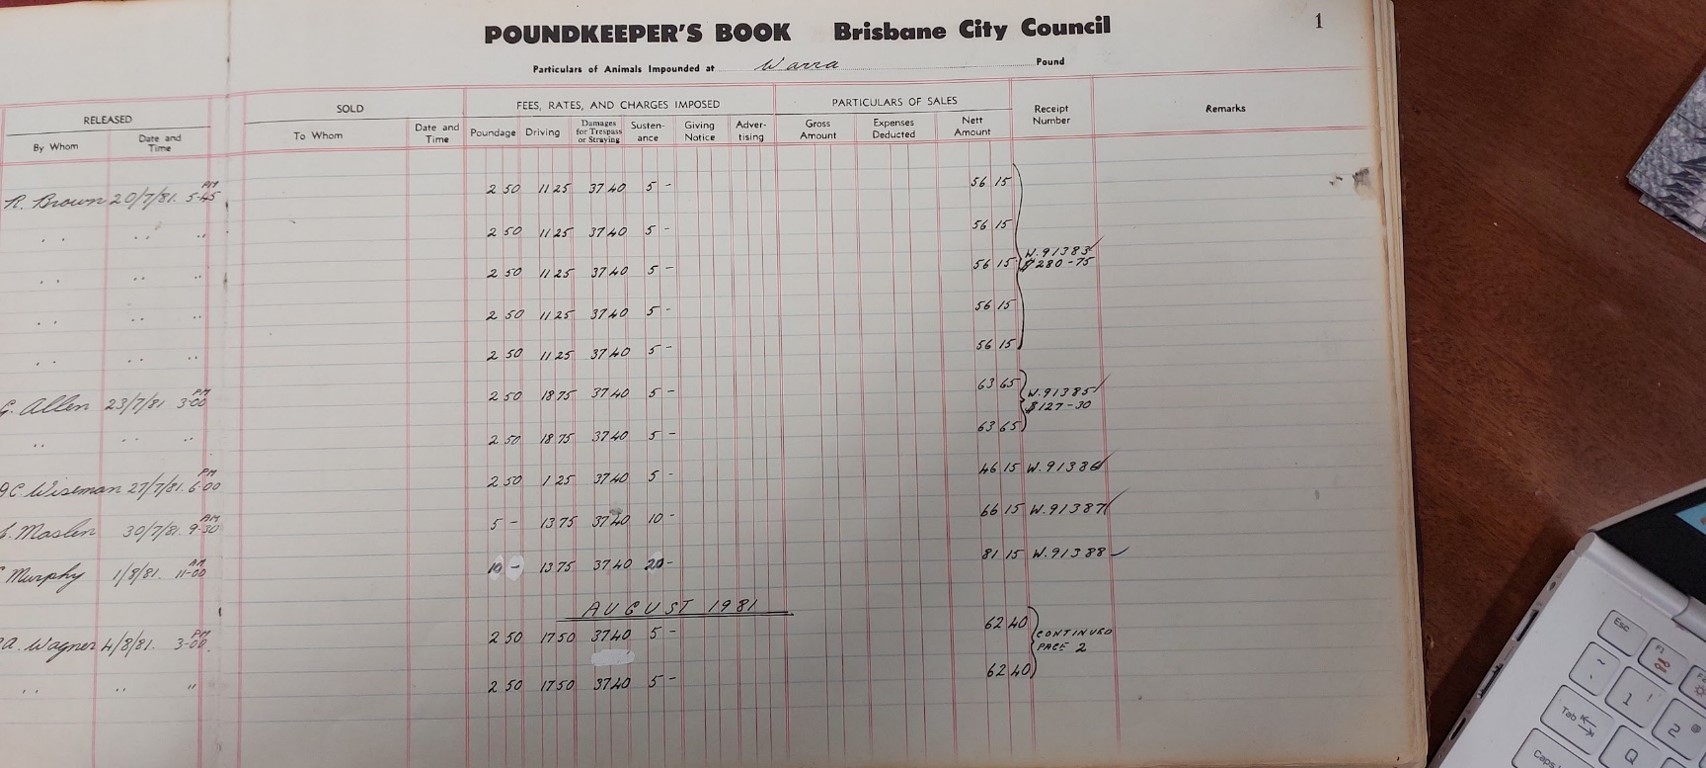 POUNDKEEPER'S BOOK Brisbane City Council 1
Particulars of Animals Impounded at Warra Pound
RELEASED SOLD FEES, RATES, AND CHARGES IMPOSED PARTICULARS OF SALES Receipt Number Remarks
By Whom Date and Time To Whom Date and Time Poundage Driving Damages for Trespass or Straying Susten-ance Giving Notice Adver-tising Gross Amount Expenses Deducted Nett Amount
R. Brown 20/7/81. 5-45 PM 2 50 11 25 37 40 5 - 56 15
" " " " " 2 50 11 25 37 40 5 - 56 15
" " " " " 2 50 11 25 37 40 5 - 56 15 W.91383 $280-75
" " " " " 2 50 11 25 37 40 5 - 56 15
" " " " " 2 50 11 25 37 40 5 - 56 15
G. Allen 23/7/81 3-00 PM 2 50 18 75 37 40 5 - 63 65 W.91385 $127-30
" " " 2 50 18 75 37 40 5 - 63 65
C. Wiseman 27/7/81. 6-00 PM 2 50 1 25 37 40 5 - 46 15 W.91386
Maslen 30/7/81. 9-30 AM 5 - 13 75 37 40 10 - 66 15 W.91387
Murphy 1/8/81. 11-00 AM 10 - 13 75 37 40 20 - 81 15 W.91388
AUGUST 1981
A. Wagner 4/8/81. 3-00 PM 2 50 17 50 37 40 5 - 62 40 CONTINUED PAGE 2
" " " 2 50 17 50 37 40 5 - 62 40
Esc
F1
~
1 !
2
Tab
Q
Caps